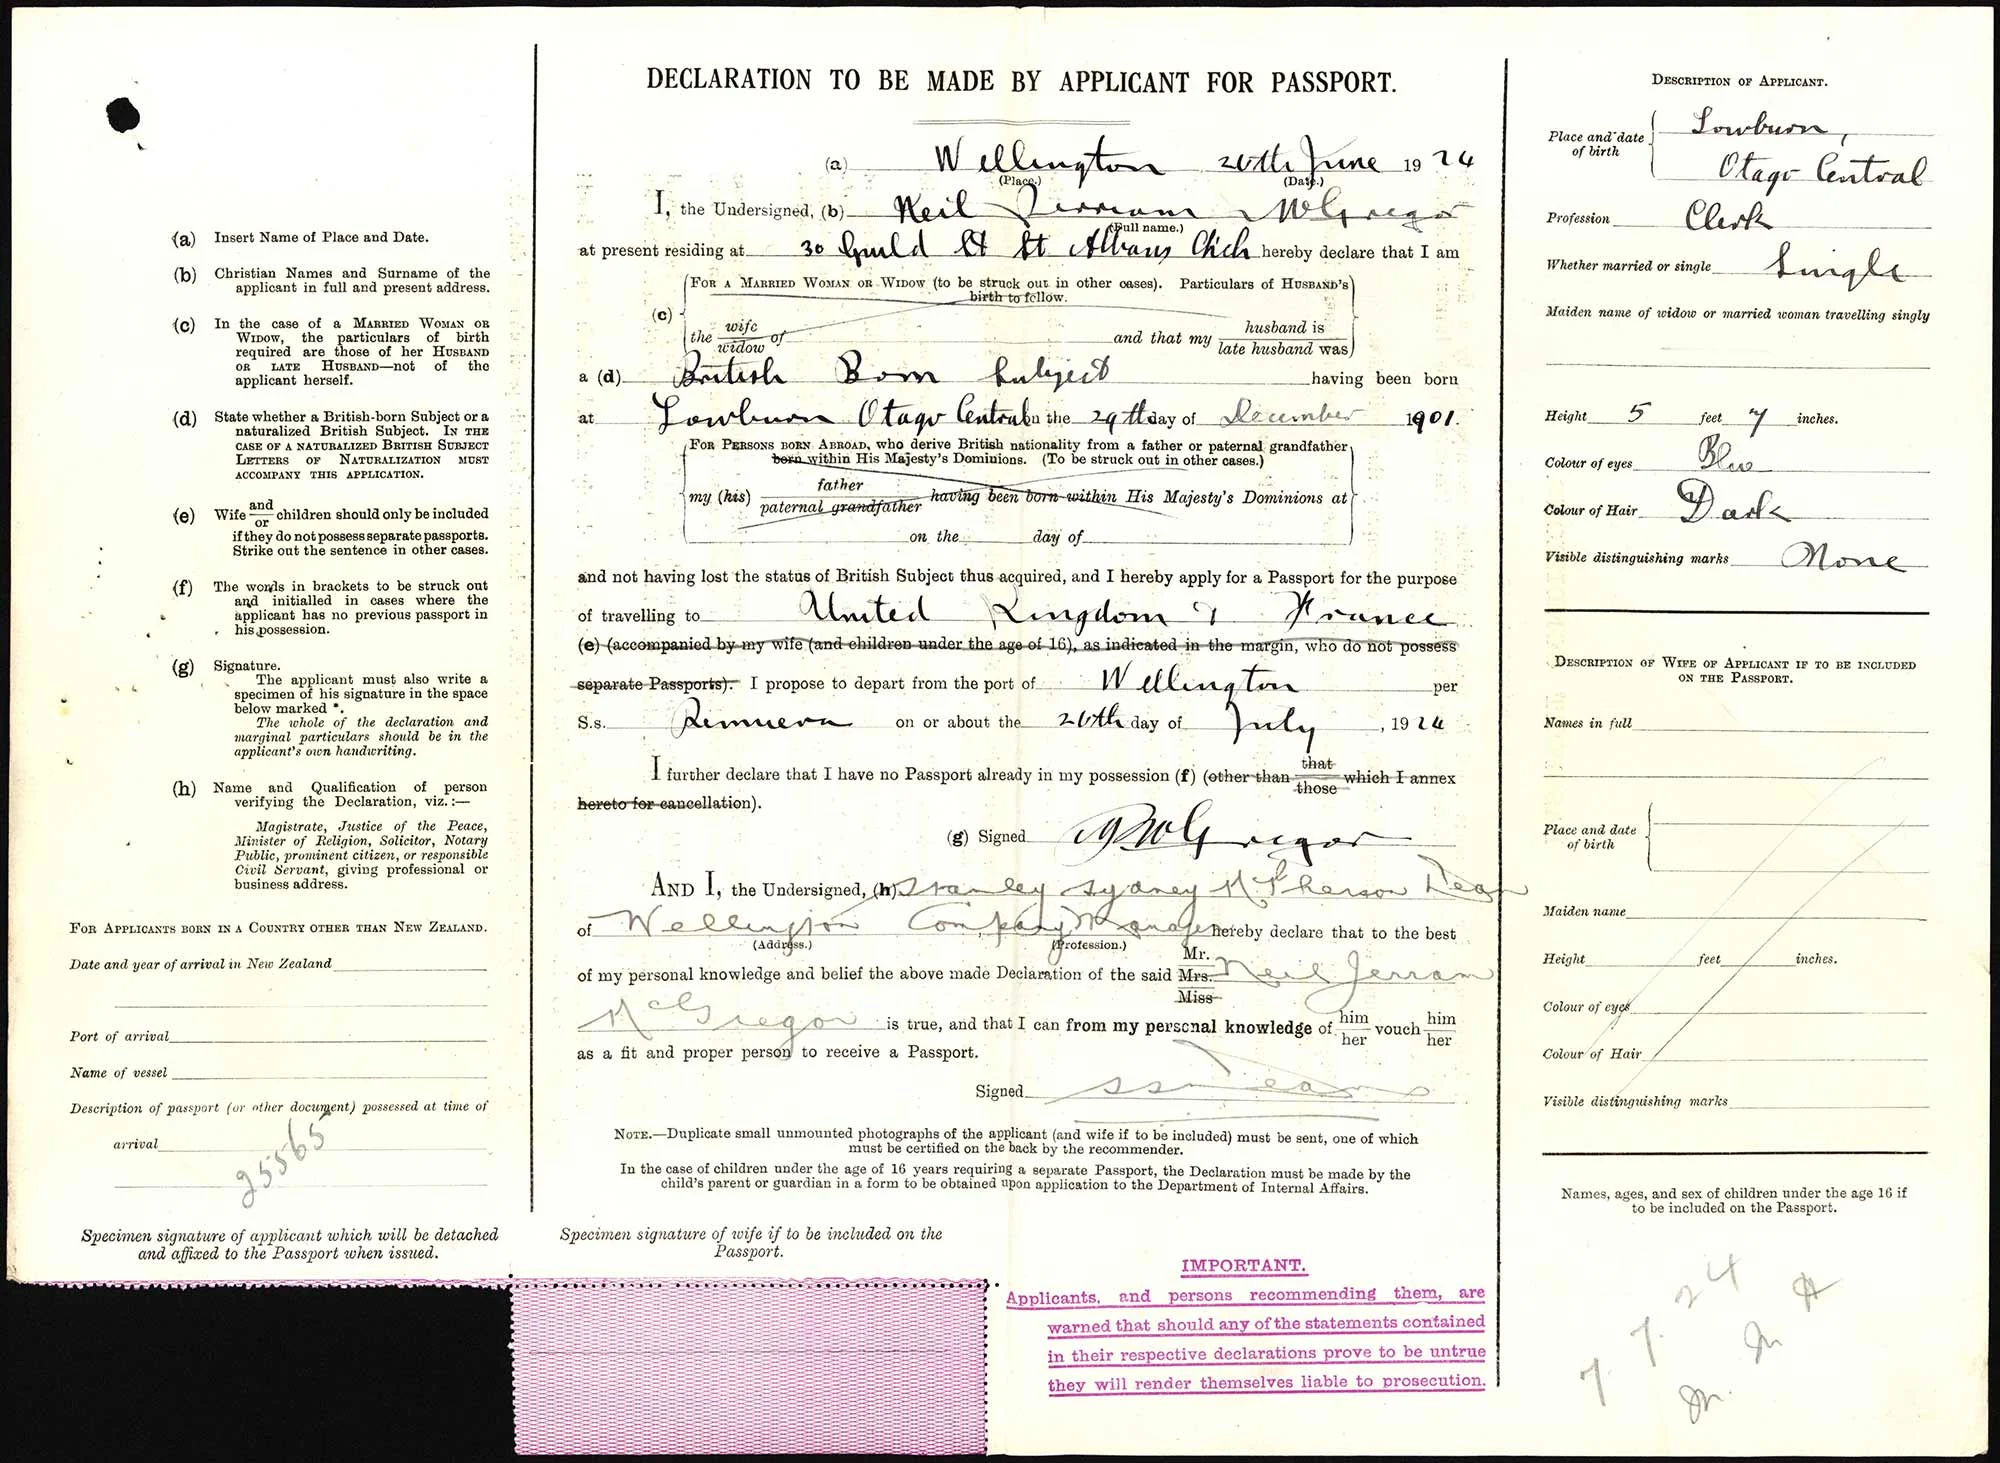 (a) Insert Name of Place and Date.
(b) Christian Names and Surname of the
applicant in full and present address.
(c) In the case of a Married Woman or
Widow, the particulars of birth
required are those of her Husband
or late Husband—not of the
applicant herself.
(d) State whether a British-born Subject or a
naturalized British Subject. In the
case of a naturalized British Subject
Letters of Naturalization must
accompany this application.
(e) Wife and/or children should only be included
if they do not possess separate passports.
Strike out the sentence in other cases.
(f) The words in brackets to be struck out
and initialled in cases where the
applicant has no previous passport in
his possession.
(g) Signature.
The applicant must also write a
specimen of his signature in the space
below marked *.
The whole of the declaration and
marginal particulars should be in the
applicant's own handwriting.
(h) Name and Qualification of person
verifying the Declaration, viz.:—
Magistrate, Justice of the Peace,
Minister of Religion, Solicitor, Notary
Public, prominent citizen, or responsible
Civil Servant, giving professional or
business address.
For Applicants born in a Country other than New Zealand.
Date and year of arrival in New Zealand
Port of arrival
Name of vessel
Description of passport (or other document) possessed at time of
arrival
25565
Specimen signature of applicant which will be detached
and affixed to the Passport when issued.
DECLARATION TO BE MADE BY APPLICANT FOR PASSPORT.
(a) Wellington 26th June 1924
(Place.) (Date.)
I, the Undersigned, (b) Neil Jerram McGregor
(Full name.)
at present residing at 30 Guild St St Albans Chch hereby declare that I am
(For a Married Woman or Widow (to be struck out in other cases). Particulars of Husband's
birth to follow.
(c)
the wife/widow of and that my husband is/late husband was
a (d) British Born Subject having been born
at Lowburn Otago Central on the 29th day of December 1901.
For Persons born Abroad, who derive British nationality from a father or paternal grandfather
born within His Majesty's Dominions. (To be struck out in other cases.)
my (his) father/paternal grandfather having been born within His Majesty's Dominions at
on the day of
and not having lost the status of British Subject thus acquired, and I hereby apply for a Passport for the purpose
of travelling to United Kingdom & France
(e) (accompanied by my wife (and children under the age of 16), as indicated in the margin, who do not possess
separate Passports). I propose to depart from the port of Wellington per
S.s. Remuera on or about the 26th day of July, 1924
I further declare that I have no Passport already in my possession (f) (other than that/those which I annex
hereto for cancellation).
(g) Signed McGregor
And I, the Undersigned, (h) Stanley Sydney McPherson Dean
of Wellington Company Manager hereby declare that to the best
(Address.) (Profession.)
of my personal knowledge and belief the above made Declaration of the said Mr./Mrs./Miss Neil Jerram
McGregor is true, and that I can from my personal knowledge of him/her vouch him/her
as a fit and proper person to receive a Passport.
Signed SSMDean
Note.—Duplicate small unmounted photographs of the applicant (and wife if to be included) must be sent, one of which
must be certified on the back by the recommender.
In the case of children under the age of 16 years requiring a separate Passport, the Declaration must be made by the
child's parent or guardian in a form to be obtained upon application to the Department of Internal Affairs.
Specimen signature of wife if to be included on the
Passport.
IMPORTANT.
Applicants, and persons recommending them, are
warned that should any of the statements contained
in their respective declarations prove to be untrue
they will render themselves liable to prosecution.
Description of Applicant.
Place and date of birth Lowburn,
Otago Central
Profession Clerk
Whether married or single Single
Maiden name of widow or married woman travelling singly
Height 5 feet 7 inches.
Colour of eyes Blue
Colour of Hair Dark
Visible distinguishing marks None
Description of Wife of Applicant if to be included
on the Passport.
Names in full
Place and date
of birth
Maiden name
Height feet inches.
Colour of eyes
Colour of Hair
Visible distinguishing marks
Names, ages, and sex of children under the age 16 if
to be included on the Passport.
7.7.24